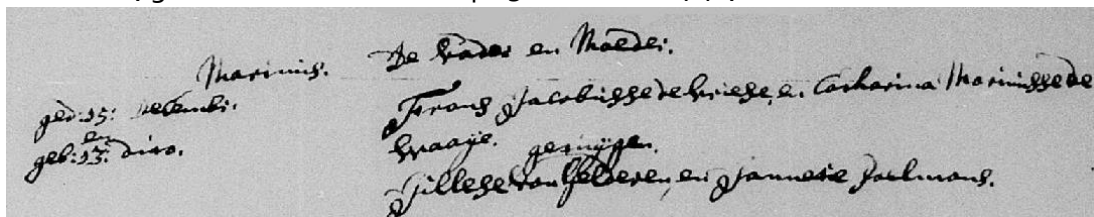 Marinus.
ged: 15: decembr.
en
geb: 13: dito.
De Vader en Moeder.
Frans Jacobusse de Vriese, en Catharina Marinusse de
Kraaije. getuijgen.
Gillese van Gelderen, en Jannetie Poelmans.